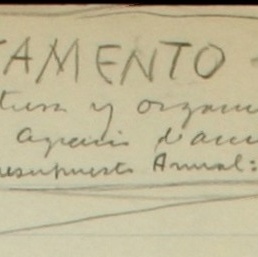 TAMENTO
tura y organi
Agraria d'acu
resupuesto Annual: